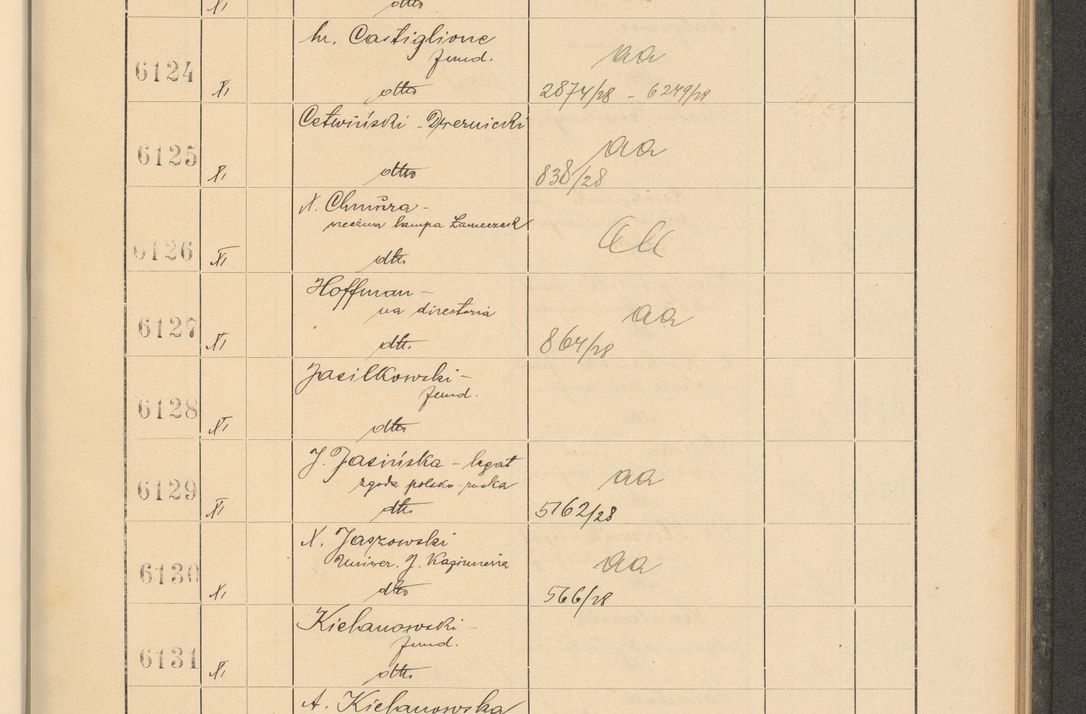 XI dtto
hr. Castiglione
fund. aa
6124 XI dtto 2874/28 - 6249/28
Cetwiński - Dwernicki
6125 aa
XI dtto 838/28
X. Chmura -
wieczna lampa Zameczek
6126 XI dtto aa
Hoffman -
va directoria
6127 aa
XI dtto 864/28
Jasilkowski -
fund.
6128 XI dtto
J. Jasińska - legat
zgoda polsko-ruska aa
6129 XI dtto 5762/28
X. Jaszowski
Uniwer. J. Kazimierza aa
6130 XI dtto 566/28
Kielanowski -
fund.
6131 XI dtto
A. Kielanowska